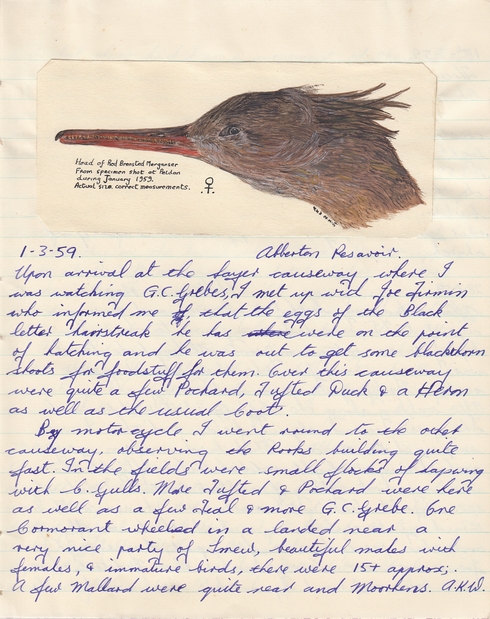 Head of Red Breasted Merganser
From specimen shot at Peldon
during January 1959.
Actual size. correct measurements. ♀
1-3-59. Abberton Resavoir
Upon arrival at the Layer causeway, where I
was watching G.C. Grebes, I met up wid Joe Firmin
who informed me that the eggs of the Black
letter hairstreak he has were on the point
of hatching and he was out to get some blackthorn
shoots for foodstuff for them. Over this causeway
were quite a few Pochard, Tufted Duck & a Heron
as well as the usual Coot.
By motorcycle I went round to the other
causeway, observing the Rooks building quite
fast. In the fields were small flocks of Lapwing
with C. Gulls. More Tufted & Pochard were here
as well as a few Teal & more G.C. Grebe. One
Cormorant wheeled in a landed near a
very nice party of Smew, beautiful males with
females, & immature birds, there were 15+ approx;
A few Mallard were quite near and Moorhens. A.K.W.